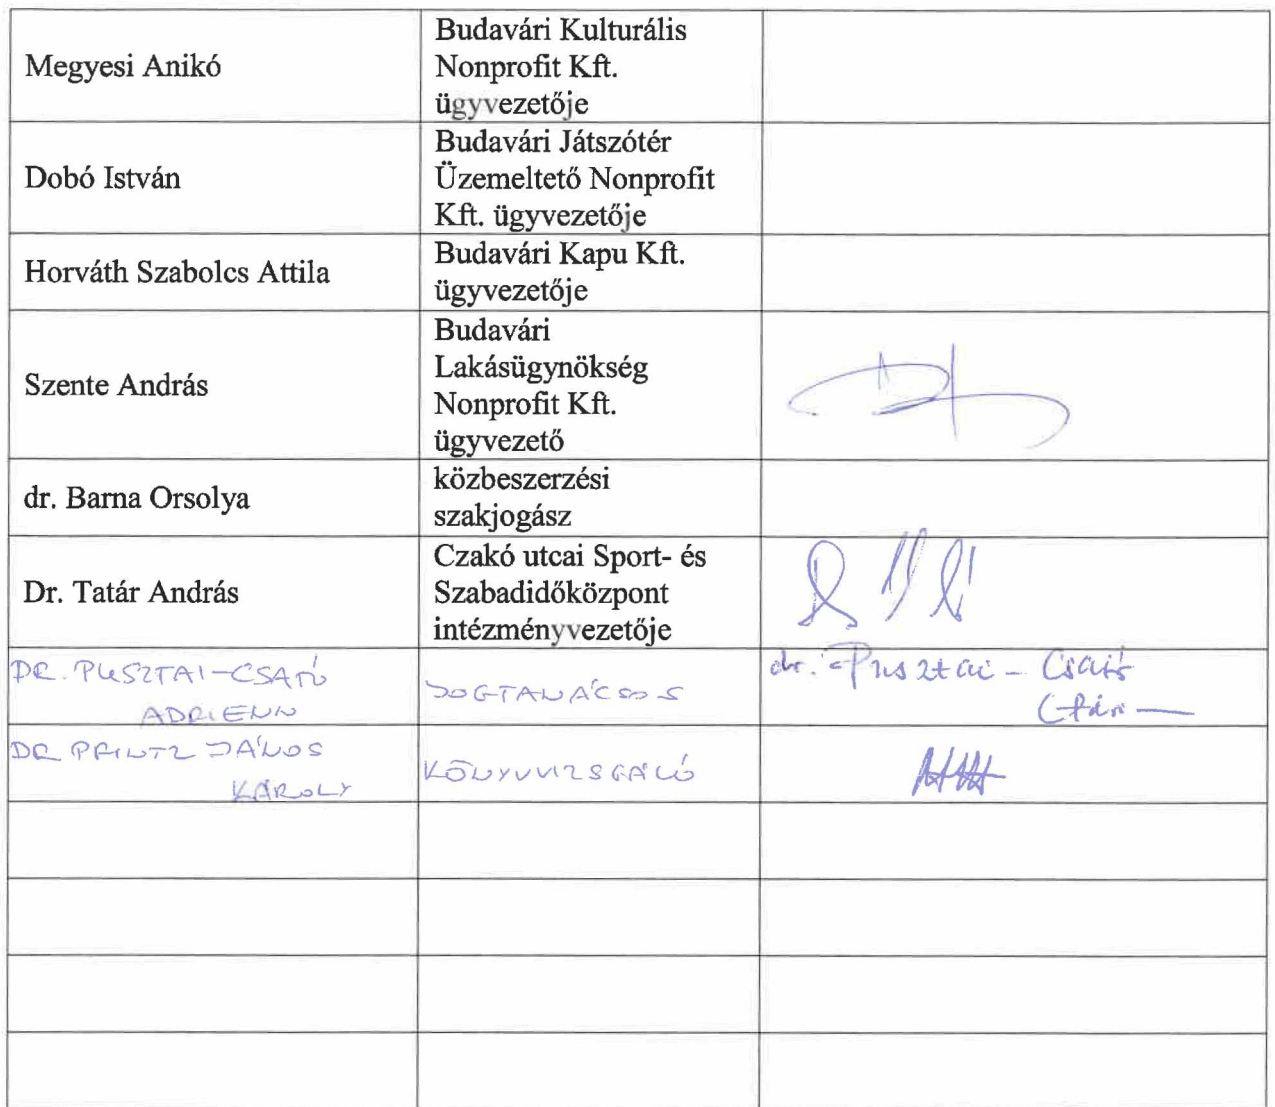 Megyesi Anikó
Budavári Kulturális
Nonprofit Kft.
ügyvezetője
Dobó István
Budavári Játszótér
Üzemeltető Nonprofit
Kft. ügyvezetője
Horváth Szabolcs Attila
Budavári Kapu Kft.
ügyvezetője
Szente András
Budavári
Lakásügynökség
Nonprofit Kft.
ügyvezető
dr. Barna Orsolya
közbeszerzési
szakjogász
Dr. Tatár András
Czakó utcai Sport- és
Szabadidőközpont
intézményvezetője
DR. PUSZTAI-CSATÓ
ADRIENN
JOGTANÁCSOS
dr. Pusztai - Csató
DR PRINTZ JÁNOS
KÁROLY
KÖNYVVIZSGÁLÓ